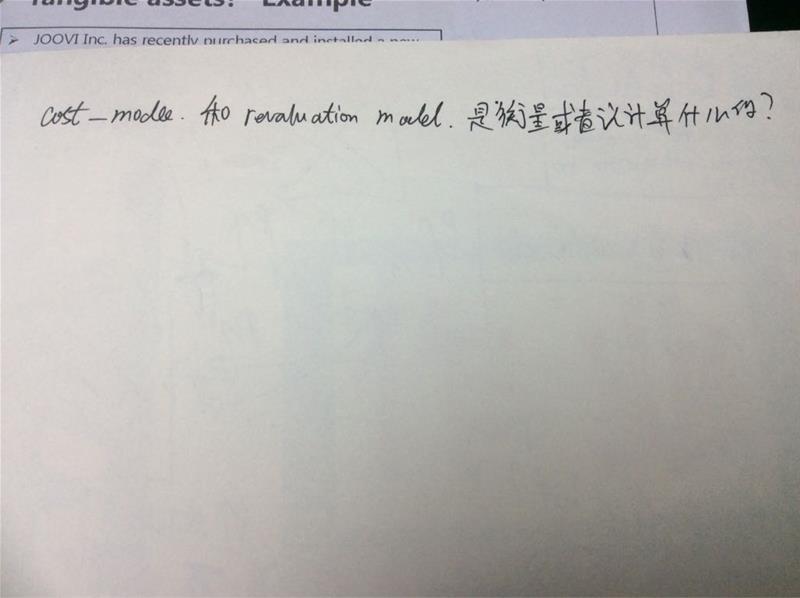 Tangible assets? Example
➢ JOOVI Inc. has recently purchased and installed a new
cost-model. 和 revaluation model. 是衡量或者说计算什么的?